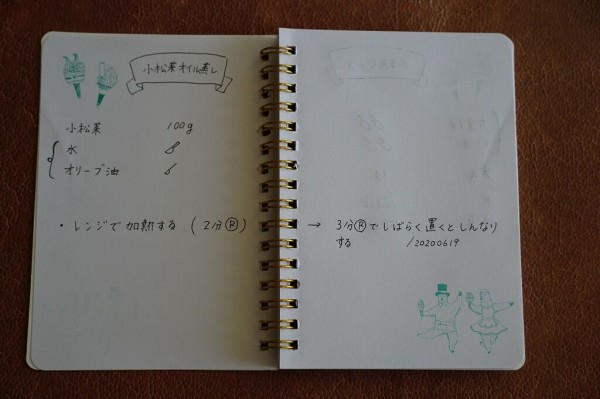 小松菜オイル蒸し
小松菜 100g
水
オリーブ油
・レンジで加熱する (2分Ⓡ)
→ 3分Ⓡでしばらく置くとしんなり
する /20200619